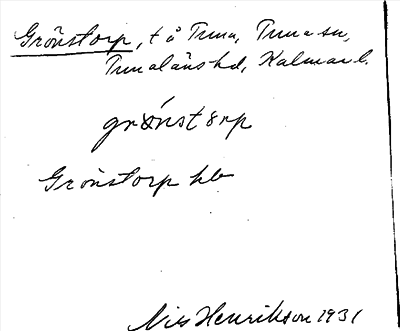 Grönstorp, t å Tuna, Tuna sn,
Tunaläns hd, Kalmar l.
grònst òrp
Grönstorp hb
Nils Henrikson 1931